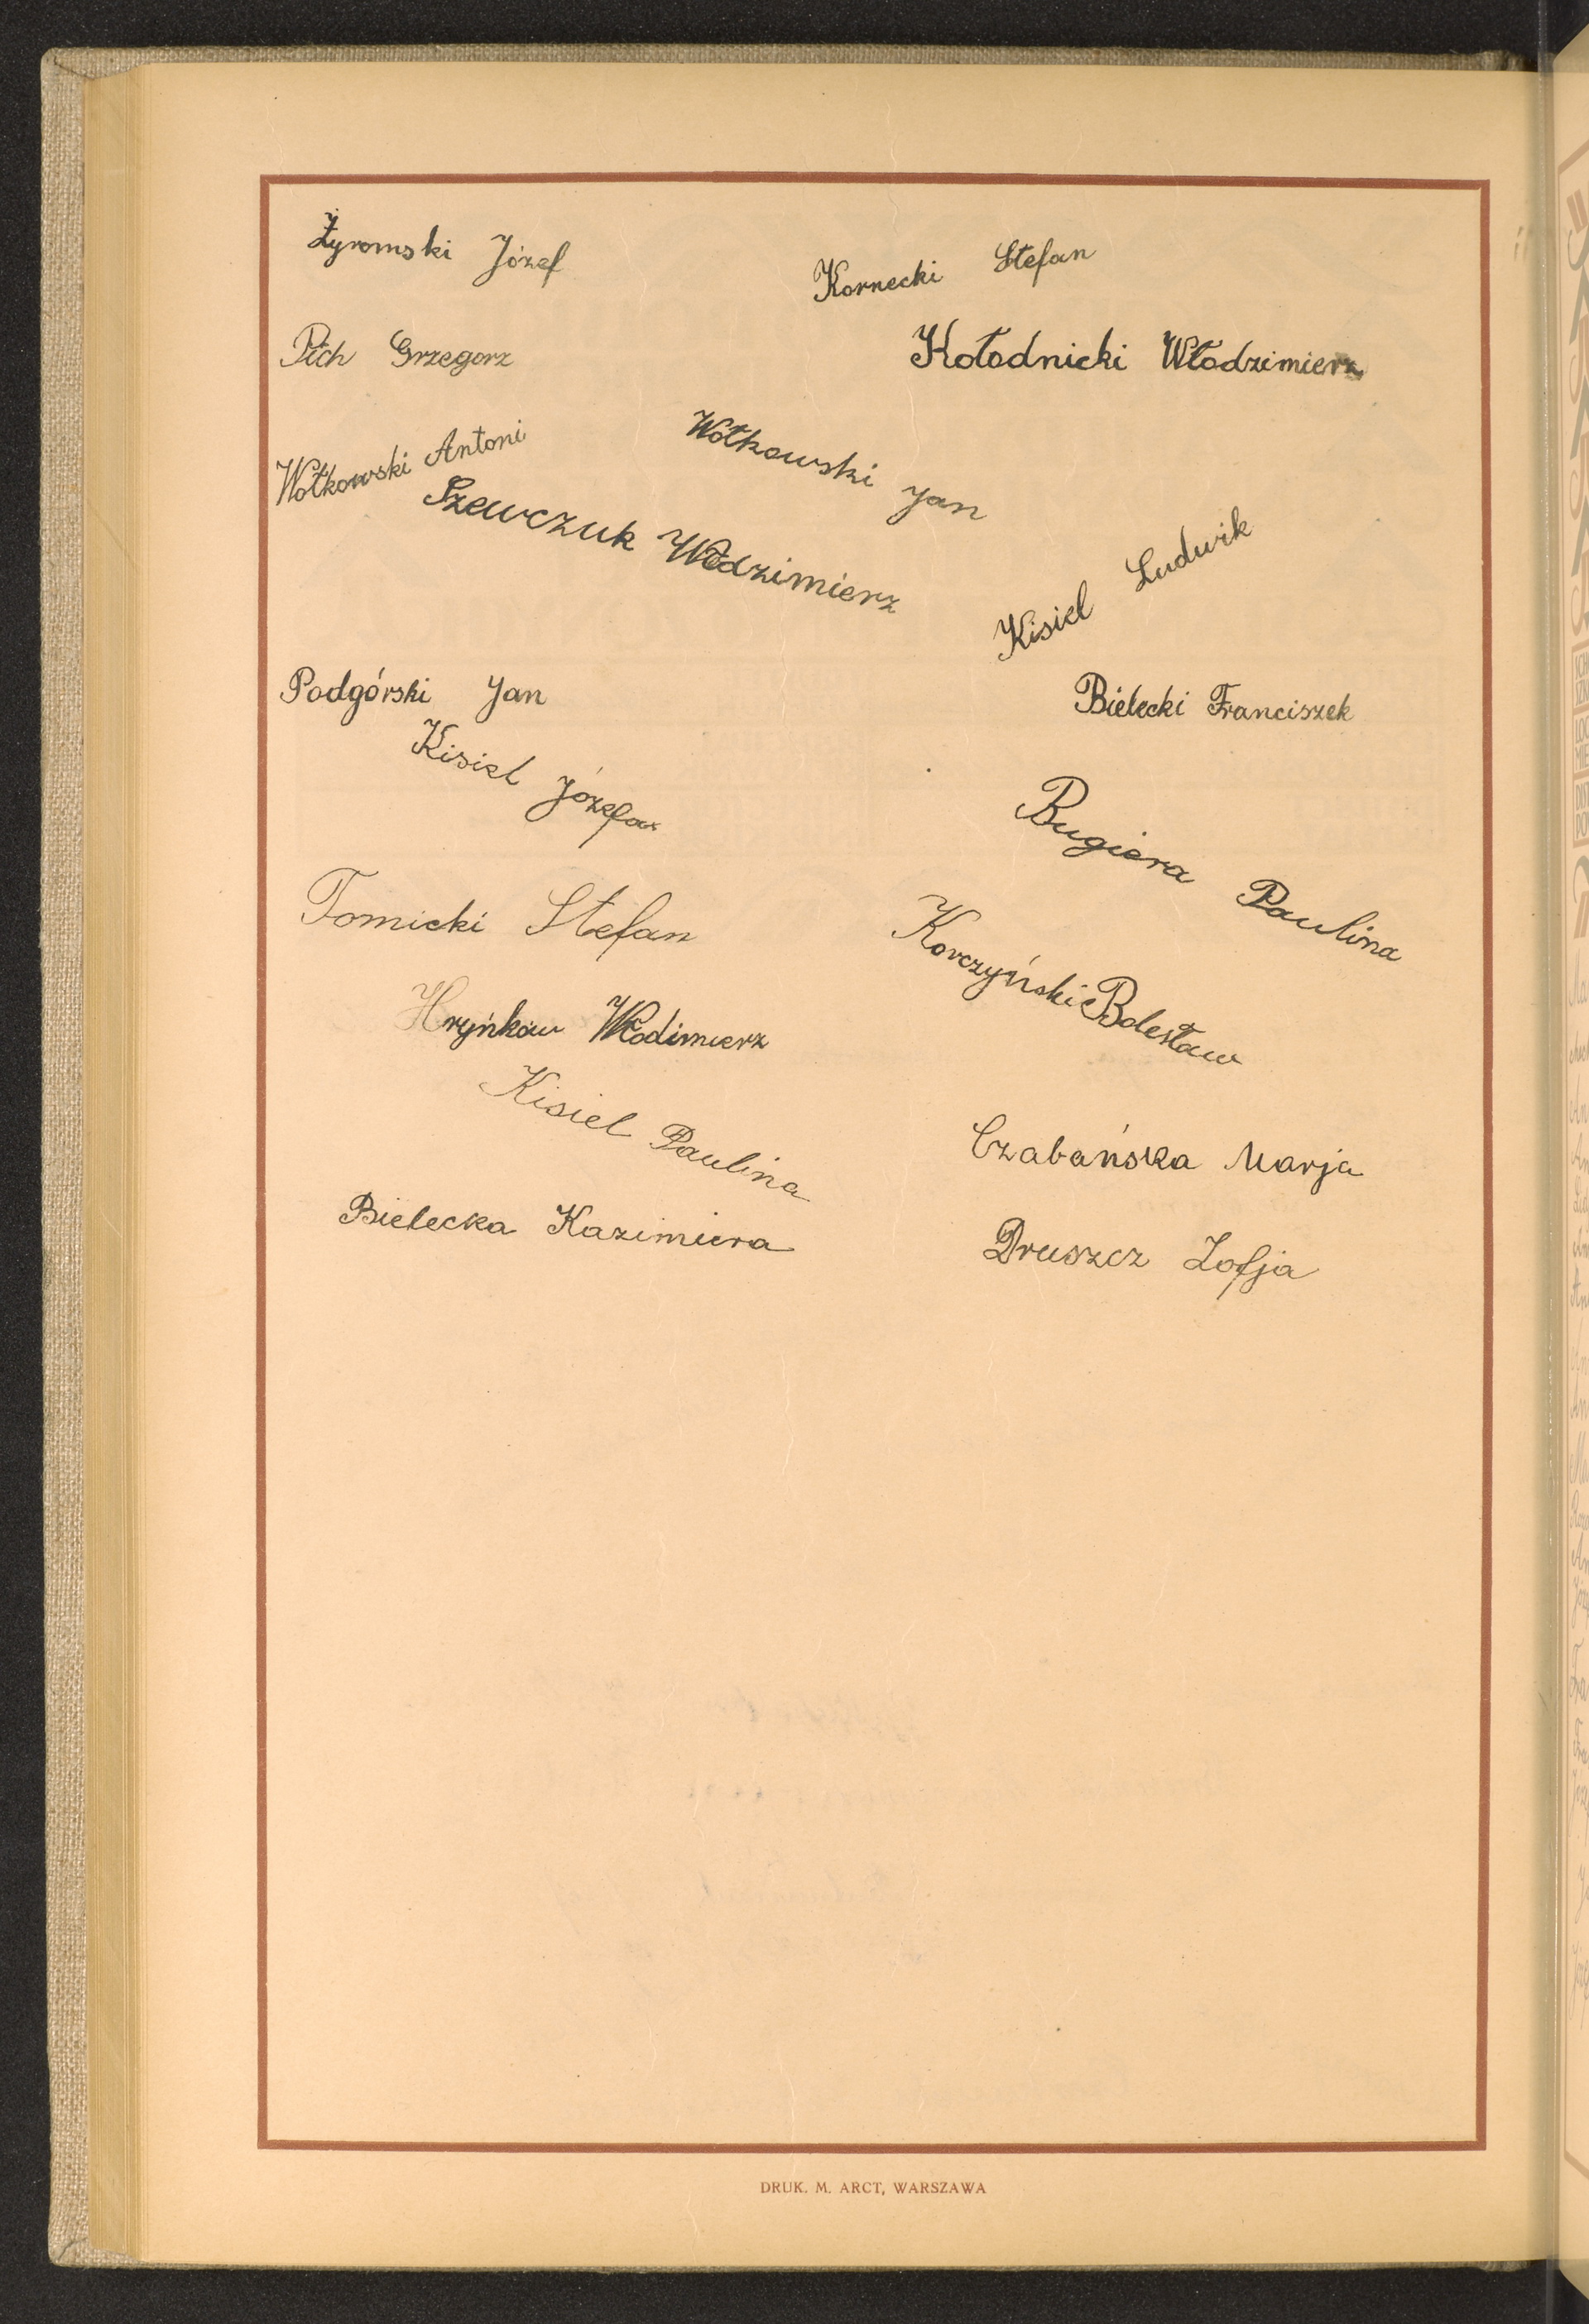 Żyromski Józef
Kornecki Stefan
Pich Grzegorz
Kołodnicki Włodzimierz
Wołkowski Antoni
Wołkowski Jan
Szewczuk Włodzimierz
Kisiel Ludwik
Podgórski Jan
Bielecki Franciszek
Kisiel Józefa
Bugiera Paulina
Tomicki Stefan
Korczyński Bolesław
Hryńkow Włodimierz
Kisiel Paulina
Czabańska Marja
Bielecka Kazimiera
Druszcz Zofja
DRUK. M. ARCT, WARSZAWA